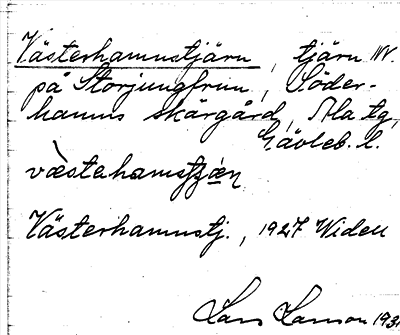 Västerhamnstjärn, tjärn NV.
på Storjungfrun, Söder-
hamns skärgård, Ala tg,
Gävleb. l.
vèstahamstjæ̀ṇ
Västerhamnstj., 1927 Widell
Lars Larson 193